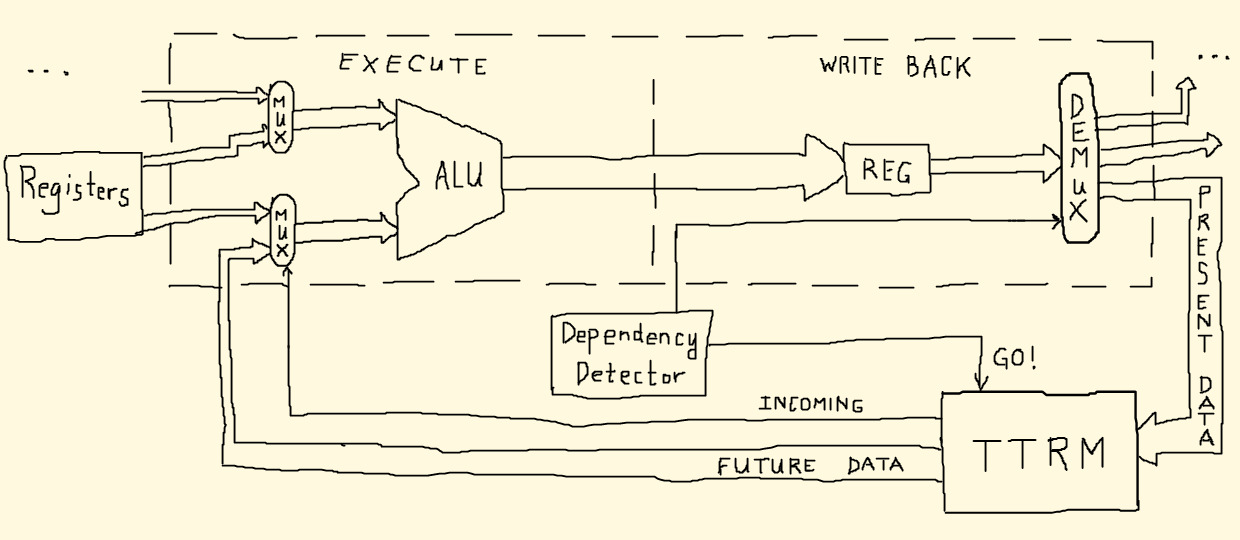 ...
EXECUTE
WRITE BACK
...
MUX
DEMUX
Registers
ALU
REG
MUX
PRESENT DATA
Dependency
Detector
GO!
INCOMING
TTRM
FUTURE DATA